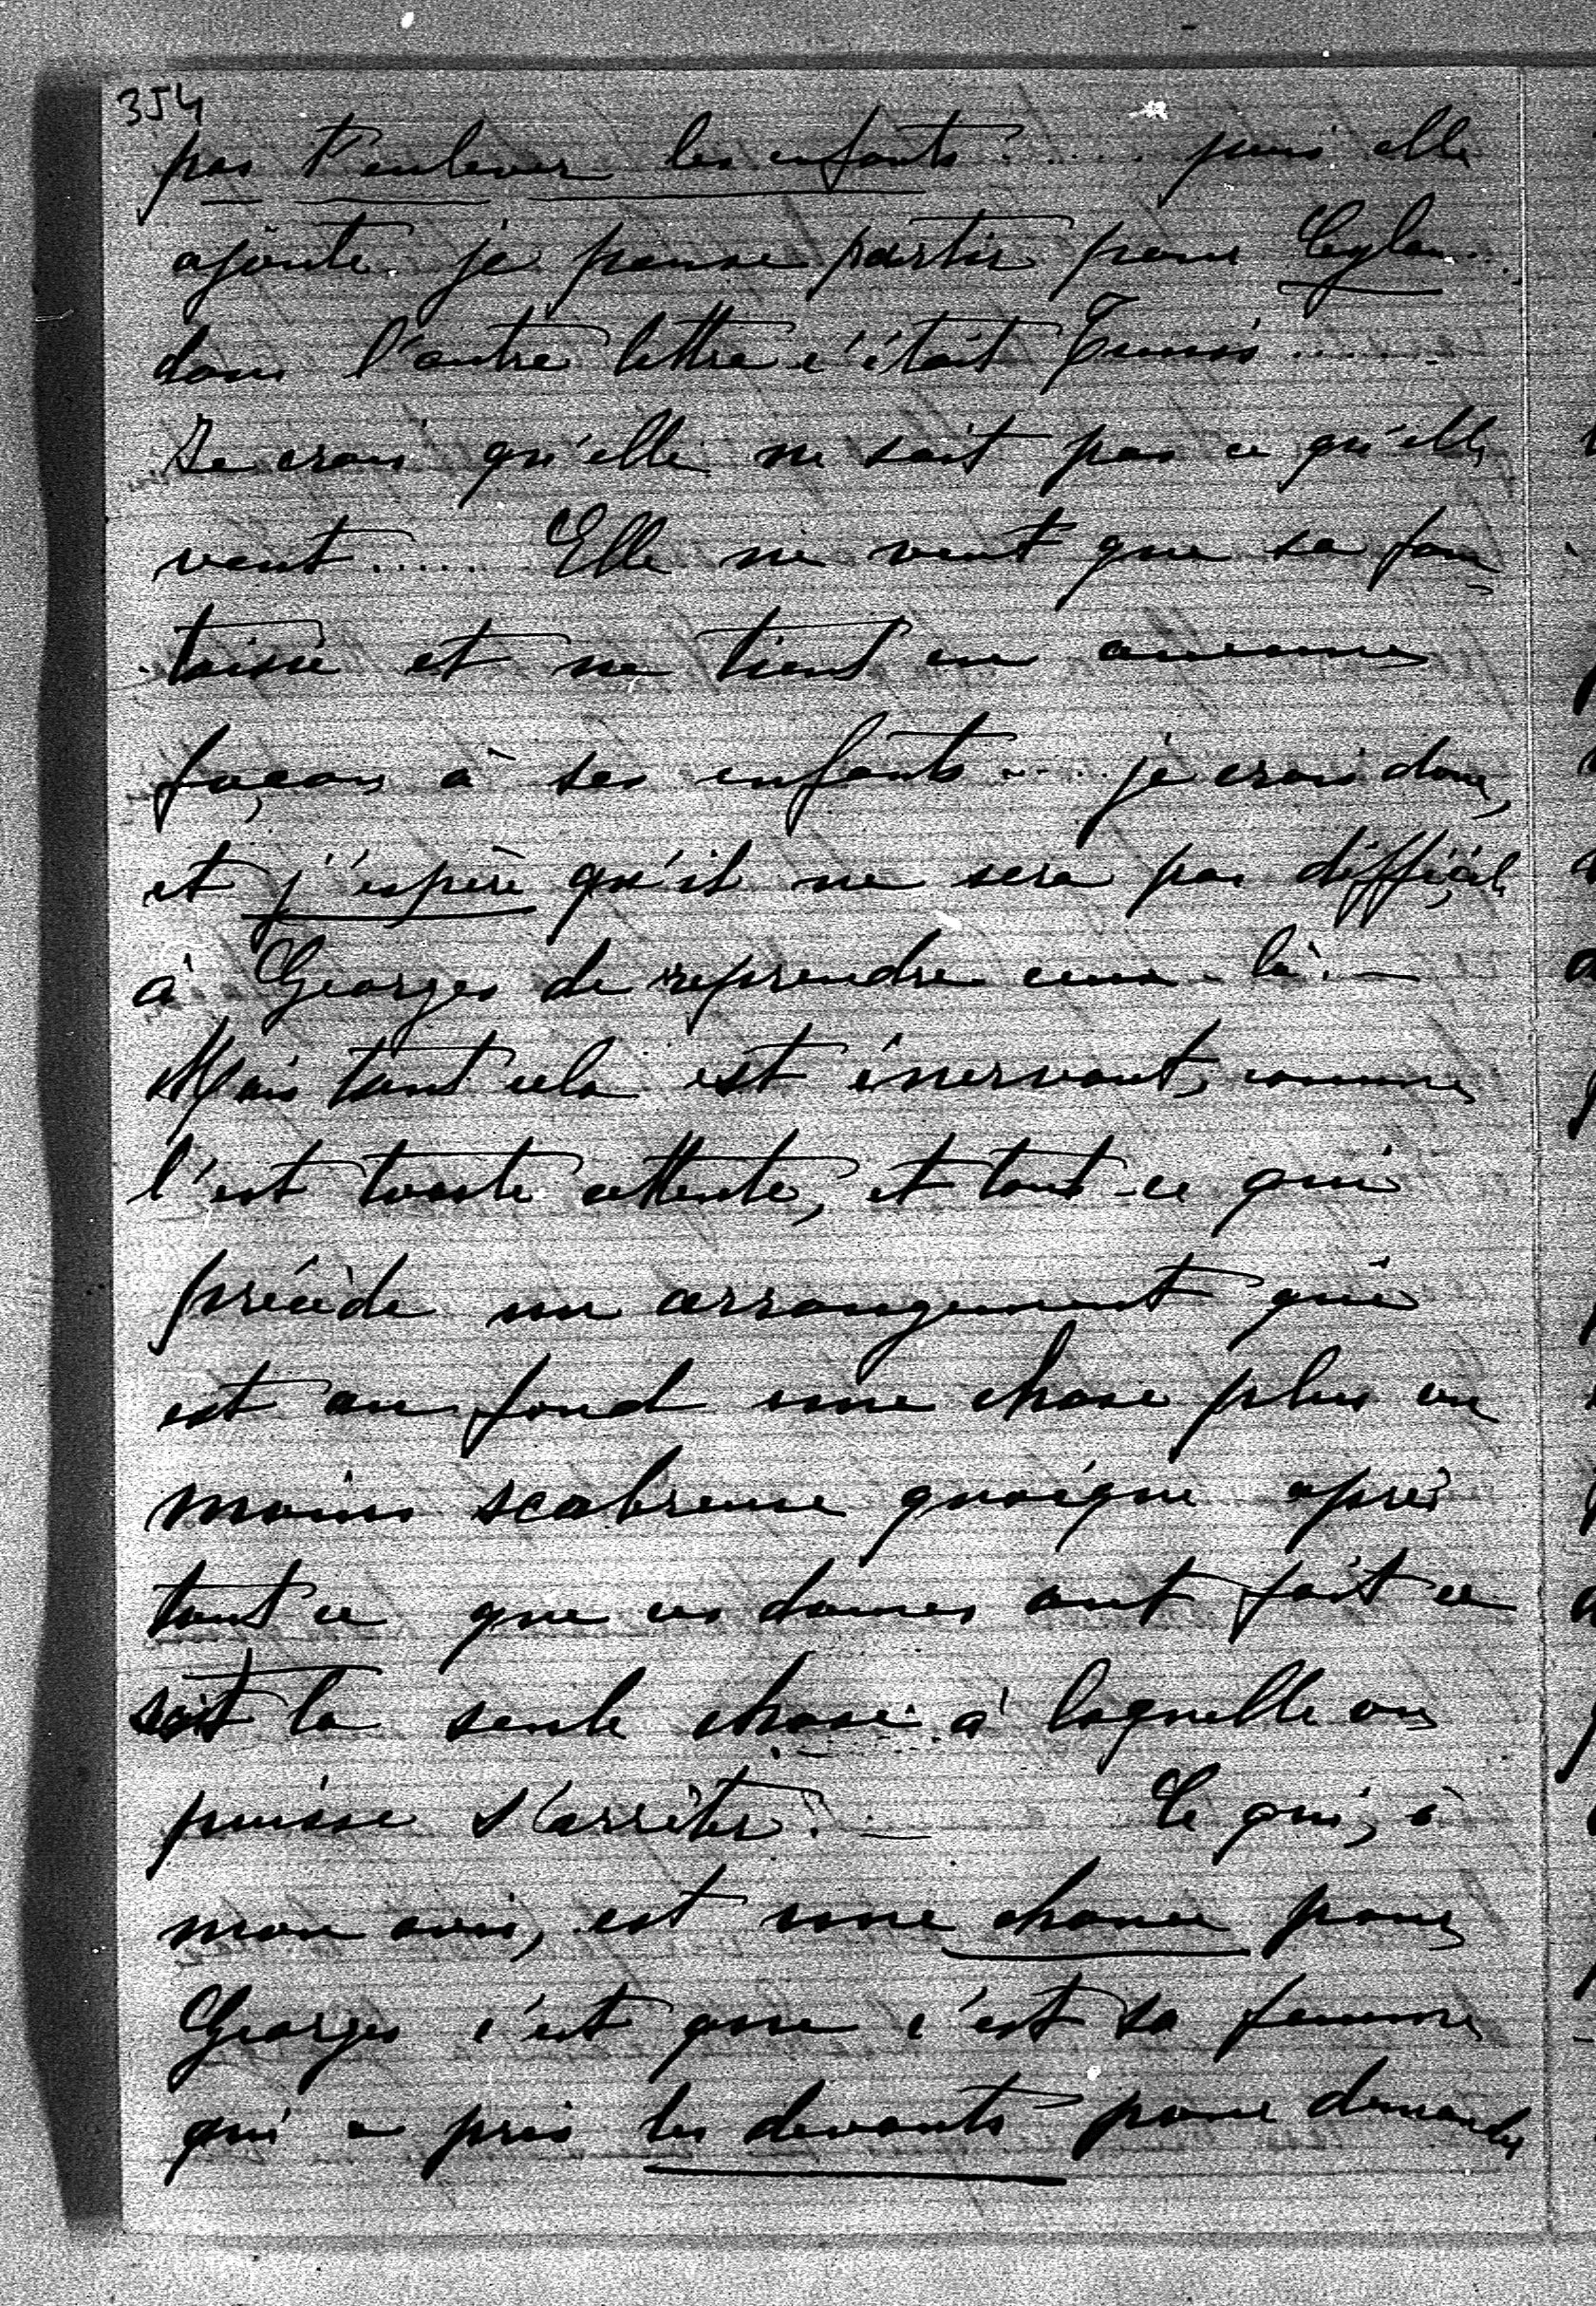 354
pas t'enlever les enfants ...... puis elle
ajoute je pense partir pour Ceylan...
dans l'autre lettre c'était Tunis ......
Je crois qu'elle ne sait pas ce qu'elle
veut ..... Elle ne veut que sa fan
taisie et ne tient en aucune
façon à ses enfants .... je crois donc,
et j'espère qu'il ne sera pas difficile
à Georges de reprendre ceux-là. —
Mais tout cela est énervant, comme
l'est toute attente, et tout ce qui
précède un arrangement qui
est au fond une chose plus ou
moins scabreuse quoique après
tout ce que ces dames ont fait ce
soit la seule chose à laquelle on
puisse s'arrêter. — Ce qui, à
mon avis, est une chance pour
Georges c'est que c'est sa femme
qui a pris les devants pour demander